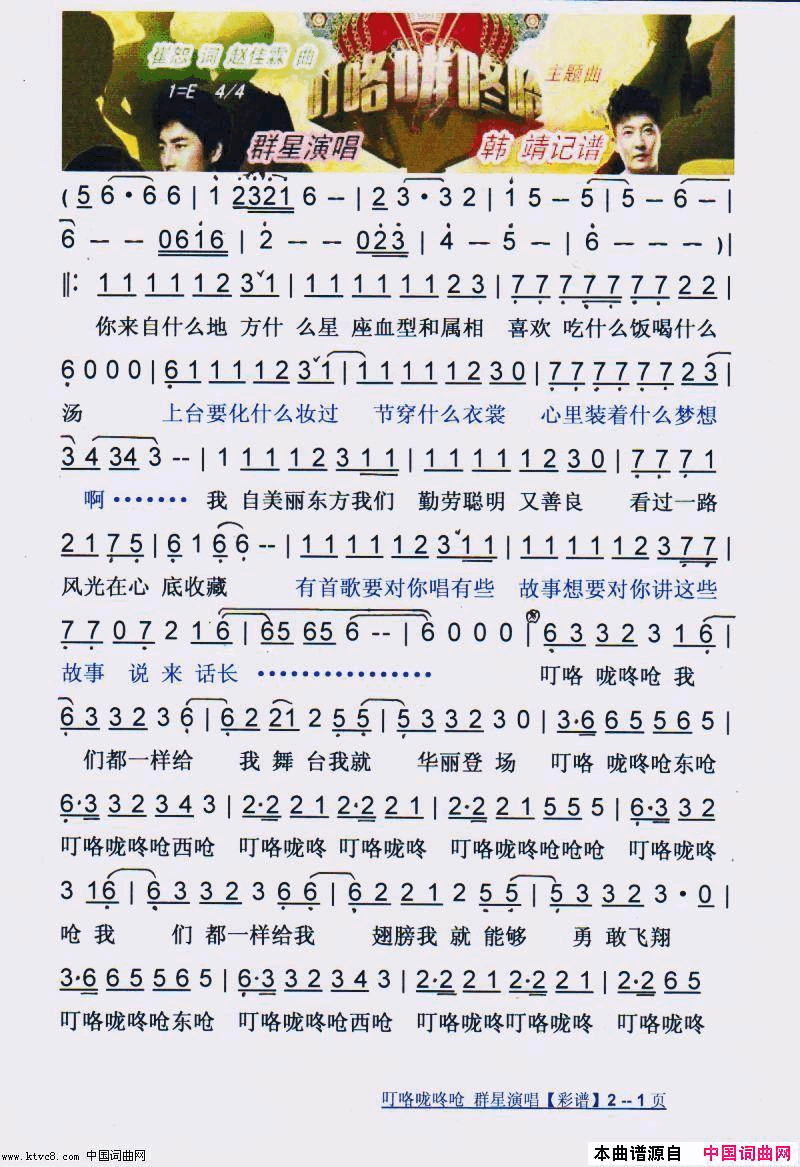 崔恕 词 赵佳霖 曲
叮咯咙咚呛 主题曲
1=E 4/4
群星演唱 韩 靖记谱
( 5 6 · 6 6 | 1 2321 6 – | 2 3 · 3 2 | 5 – – 5 | 5 – 6 – |
6 – – 0616 | 2 – – 023 | 4 – 5 – | 6 – – – )|
‖: 1 1 1 1 1 2 3 1 | 1 1 1 1 1 1 2 3 | 7 7 7 7 7 7 7 2 2 |
你来自什么地 方什 么星 座血型和属相 喜欢 吃什么饭喝什么
6 0 0 0 | 6 1 1 1 1 2 3 1 | 1 1 1 1 1 1 2 3 0 | 7 7 7 7 7 7 7 2 3 |
汤 上台要化什么妆过 节穿什么衣裳 心里装着什么梦想
3 4 34 3 – – | 1 1 1 1 2 3 1 1 | 1 1 1 1 1 2 3 0 | 7 7 7 1
啊 ······· 我 自美丽东方我们 勤劳聪明 又善良 看过一路
2 1 7 5 | 6 1 6 6 – – | 1 1 1 1 1 2 3 1 1 | 1 1 1 1 1 2 3 7 7 |
风光在心 底收藏 有首歌要对你唱有些 故事想要对你讲这些
7 7 0 7 2 1 6 | 65 65 6 – – | 6 0 0 0 | 6 3 3 2 3 1 6 |
故事 说 来 话长 ················ 叮咯 咙咚呛 我
6 3 3 2 3 6 | 6 2 21 2 5 5 | 5 3 3 2 3 0 | 3·6 6 5 5 6 5 |
们都一样给 我 舞 台我就 华丽登 场 叮咯 咙咚呛东呛
6·3 3 2 3 4 3 | 2·2 2 1 2·2 2 1 | 2·2 2 1 5 5 5 | 6·3 3 2
叮咯咙咚呛西呛 叮咯咙咚 叮咯咙咚 叮咯咙咚呛呛呛 叮咯咙咚
3 1 6 | 6 3 3 2 3 6 6 | 6 2 2 1 2 5 5 | 5 3 3 2 3 · 0 |
呛 我 们 都一样给我 翅膀我 就 能够 勇 敢飞翔
3·6 6 5 5 6 5 | 6·3 3 2 3 4 3 | 2·2 2 1 2·2 2 1 | 2·2 6 5
叮咯咙咚呛东呛 叮咯咙咚呛西呛 叮咯咙咚叮咯咙咚 叮咯咙咚
叮咯咙咚呛 群星演唱【彩谱】2 -- 1 页
www.ktvc8.com 中国词曲网
本曲谱源自 中国词曲网